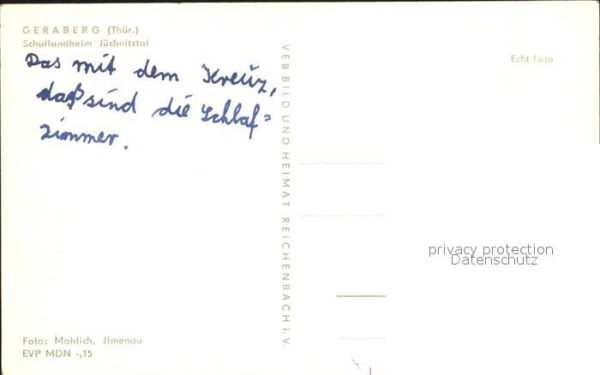 GERABERG (Thür.)
Schullandheim Jüchnitztal
Das mit dem Kreuz,
daß sind die Schlaf=
zimmer.
Echt Foto
VEB BILD UND HEIMAT REICHENBACH i. V.
privacy protection
Datenschutz
Foto: Mohlich, Jlmenau
EVP MDN -,15